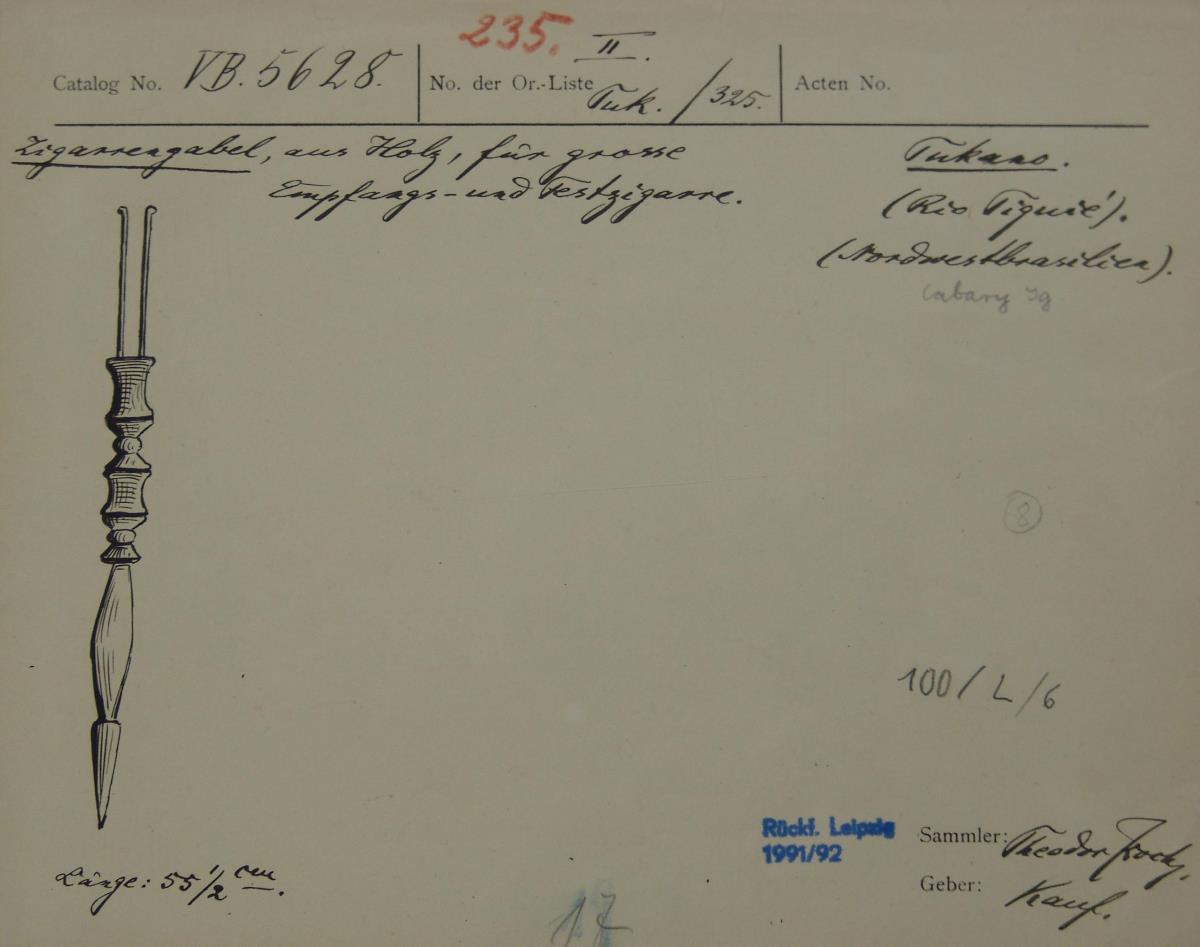 235. II.
Catalog No. VB. 5628.
No. der Or.-Liste Tuk. / 325.
Acten No.
Zigarrengabel, aus Holz, für grosse
Empfangs- und Festzigarre.
Tukano.
(Rio Tiquié).
(Nordwestbrasilien).
8
100 / L / 6
Rückf. Leipzig
1991/92
Sammler: Theodor Koch,
Geber: Kauf.
Länge: 55 1/2 cm.
17